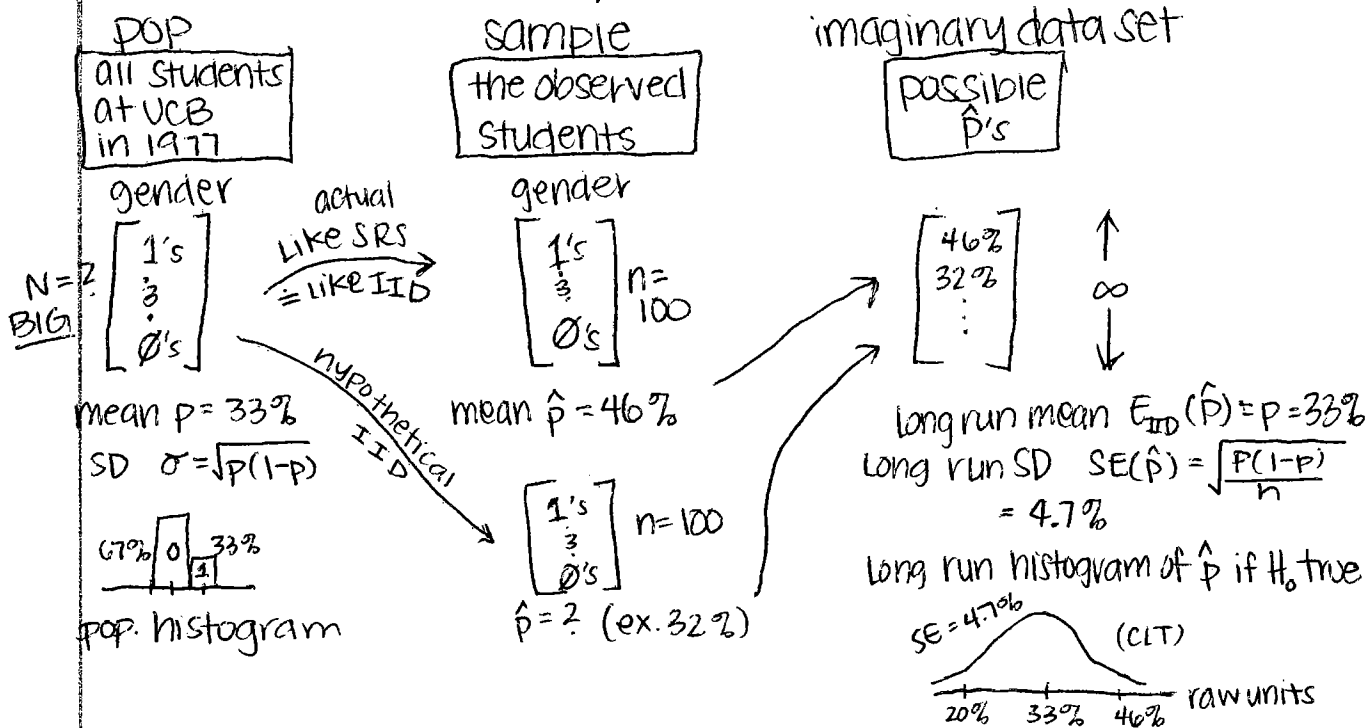 POP
all students
at UCB
in 1977
gender
N = ?
BIG
1's
⋮
0's
mean p = 33%
SD σ = √p(1-p)
67% 0 1 33%
pop. histogram
actual
Like SRS
≐ Like IID
hypothetical
IID
sample
the observed
students
gender
1's
⋮
0's
n =
100
mean p̂ = 46%
1's
⋮
0's
n = 100
p̂ = ? (ex. 32%)
imaginary data set
possible
p̂'s
46%
32%
⋮
∞
long run mean E_IID(p̂) = p = 33%
Long run SD SE(p̂) = √(p(1-p)/n)
= 4.7%
Long run histogram of p̂ if H₀ true
SE = 4.7%
(CLT)
20% 33% 46% raw units